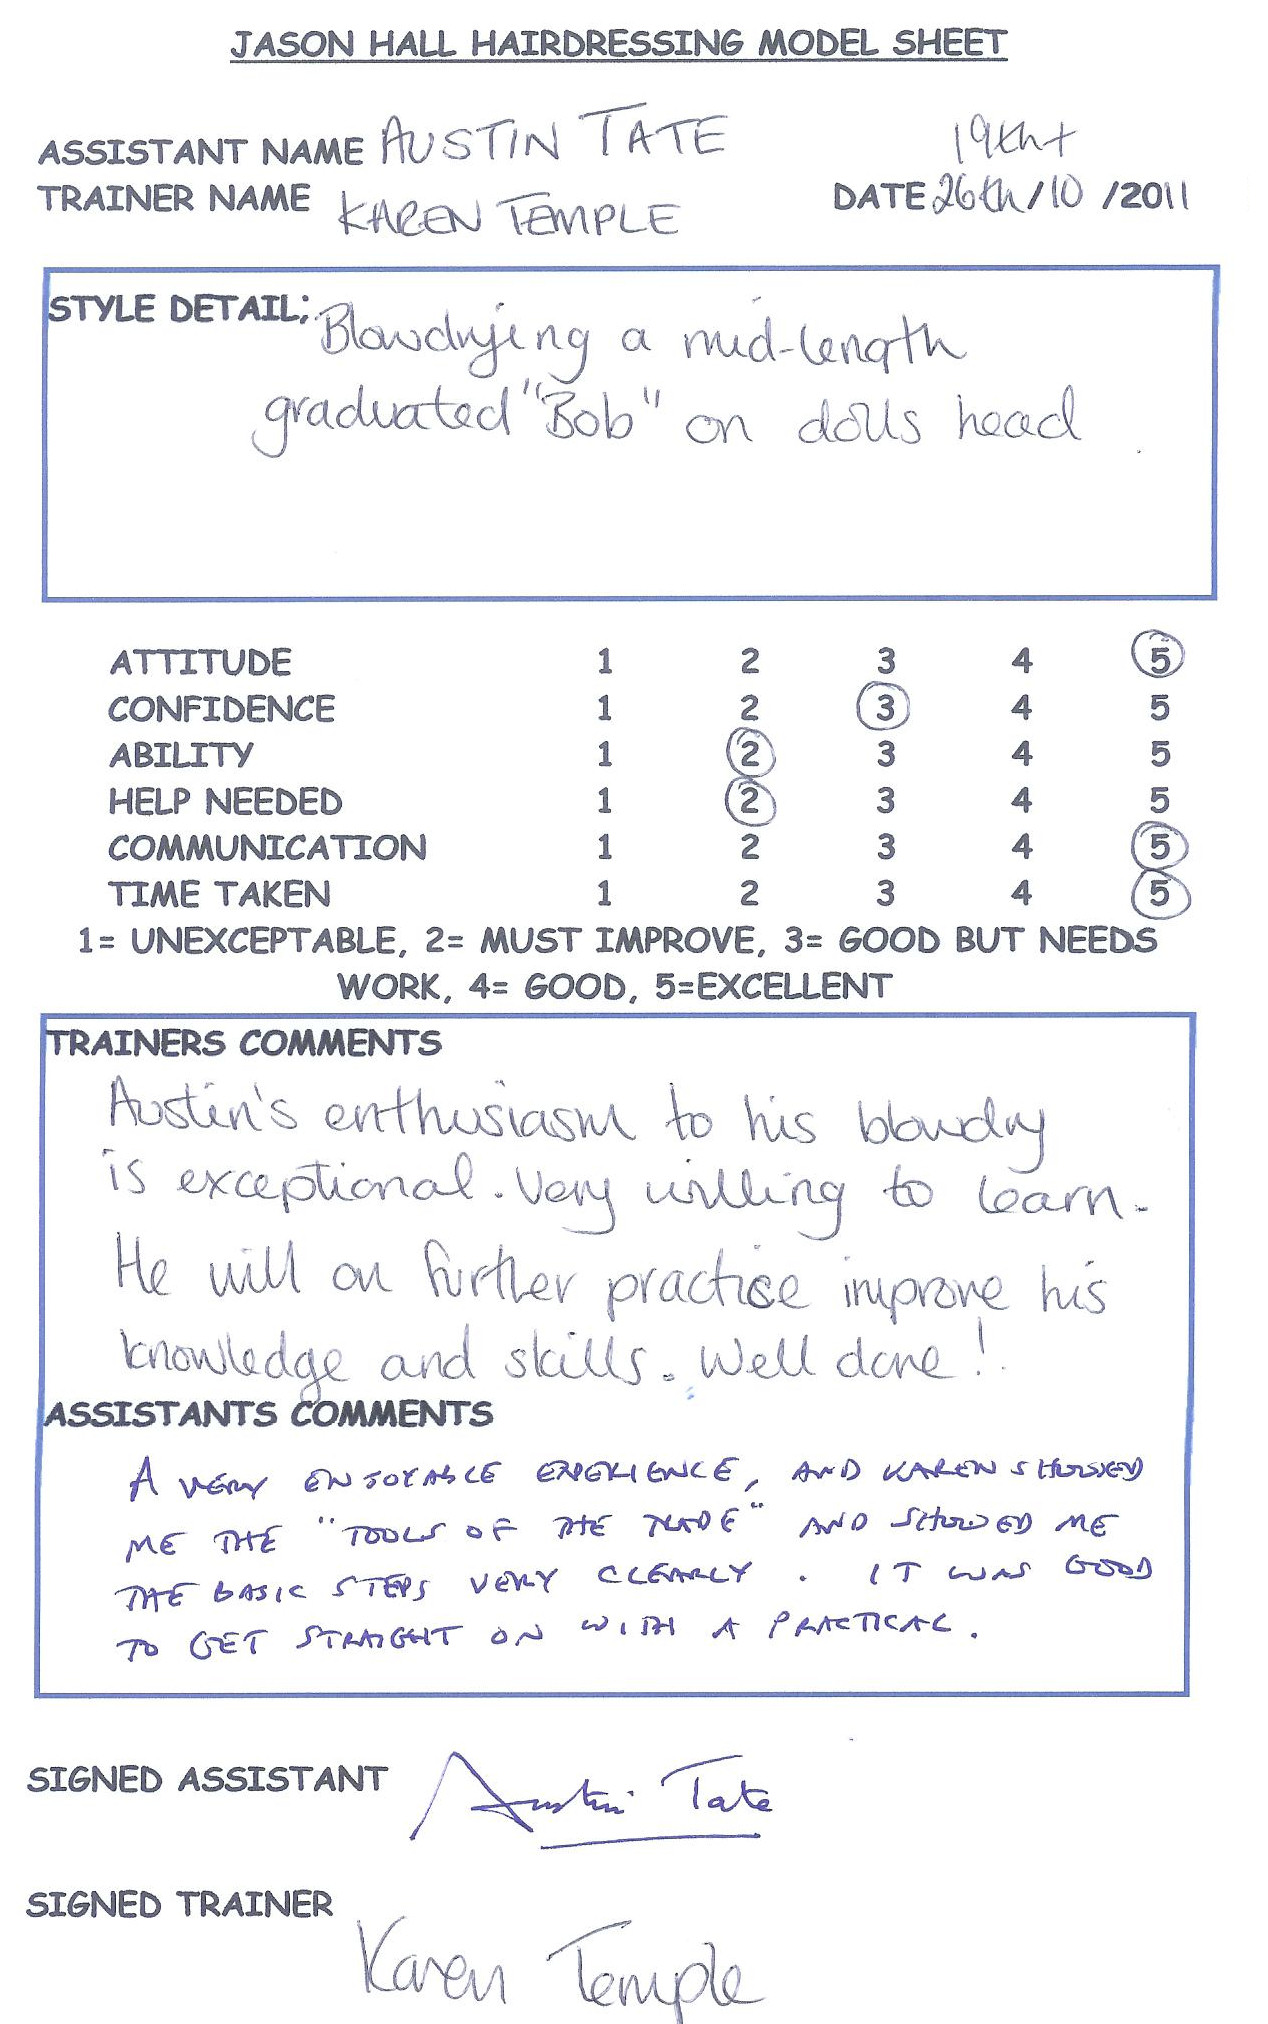 JASON HALL HAIRDRESSING MODEL SHEET
ASSISTANT NAME AUSTIN TATE 19th +
TRAINER NAME KAREN TEMPLE DATE 26th/10 /2011
STYLE DETAIL; Blowdrying a mid-length
graduated "Bob" on dolls head
ATTITUDE 1 2 3 4 5
CONFIDENCE 1 2 3 4 5
ABILITY 1 2 3 4 5
HELP NEEDED 1 2 3 4 5
COMMUNICATION 1 2 3 4 5
TIME TAKEN 1 2 3 4 5
1= UNEXCEPTABLE, 2= MUST IMPROVE, 3= GOOD BUT NEEDS
WORK, 4= GOOD, 5=EXCELLENT
TRAINERS COMMENTS
Austin's enthusiasm to his blowdry
is exceptional. Very willing to learn.
He will on further practise improve his
knowledge and skills. Well done!
ASSISTANTS COMMENTS
A VERY ENJOYABLE EXPERIENCE, AND KAREN SHOWED
ME THE "TOOLS OF THE TRADE" AND SHOWED ME
THE BASIC STEPS VERY CLEARLY. IT WAS GOOD
TO GET STRAIGHT ON WITH A PRACTICAL.
SIGNED ASSISTANT Austin Tate
SIGNED TRAINER Karen Temple